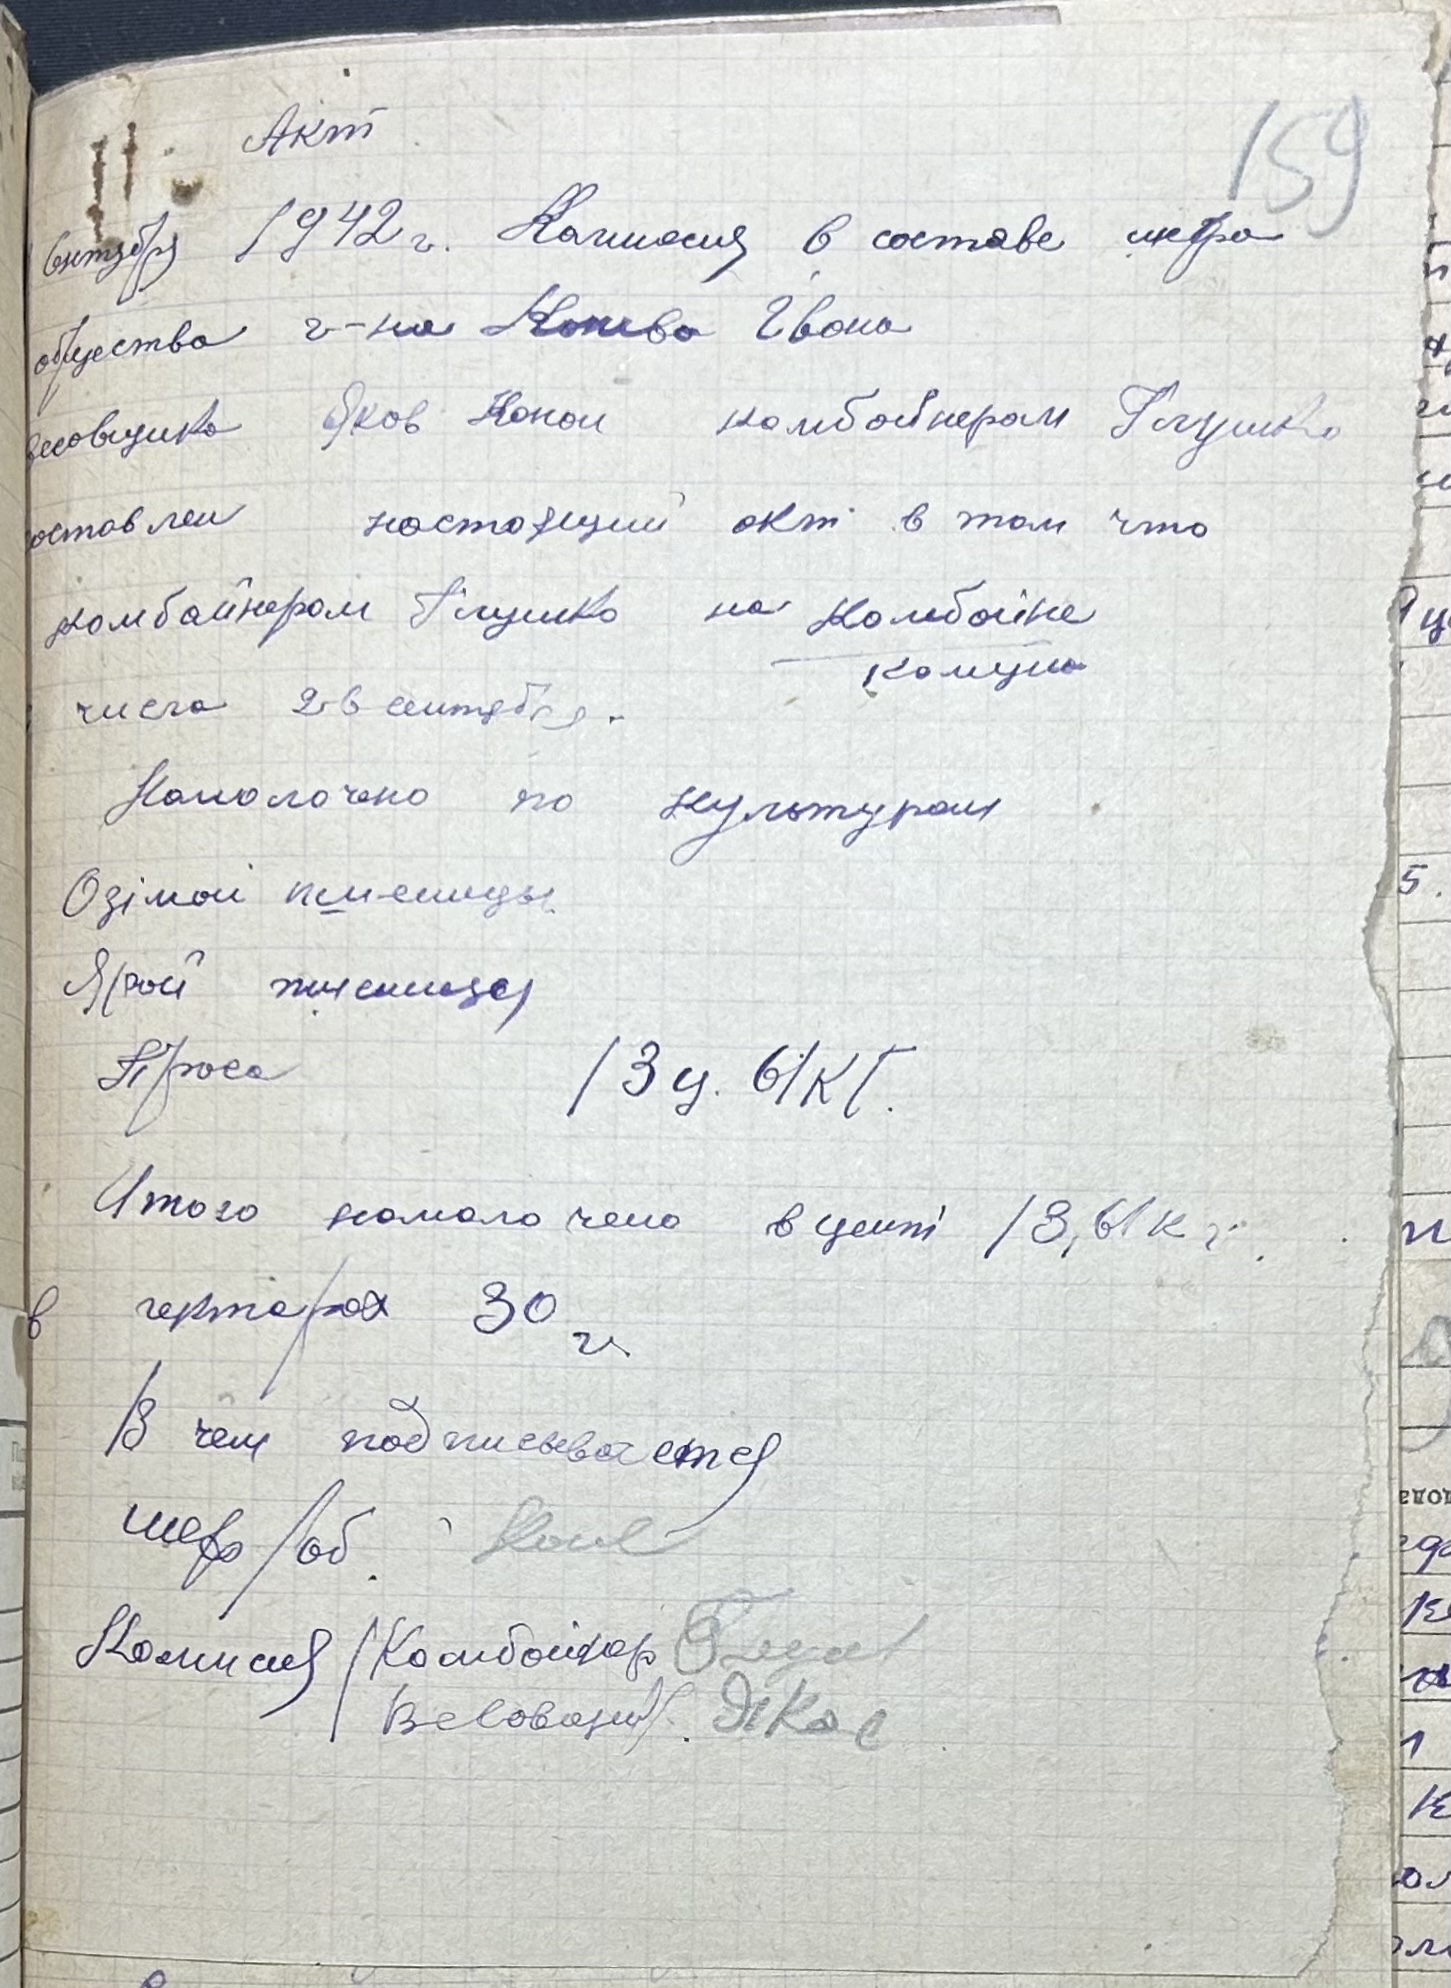 159
Акт
сентября 1942 г. Комисия в составе шефа
общества г-на Иона
весовщика Яков Конон комбайнером Глушко
составлен настоящий акт в том что
комбайнером Глушко на комбайне
комуна
числа 2-в сентября.
Намолочено по культурам
Озімой пшеницы
Ярой пшеницы
Проса 13 ц. 61 кг.
Итого намолочено в цент 13,61 кг.
в гектарах 30 г.
В чем подписывается
шеф/об.
Комисия / Комбайнер
Весовщик